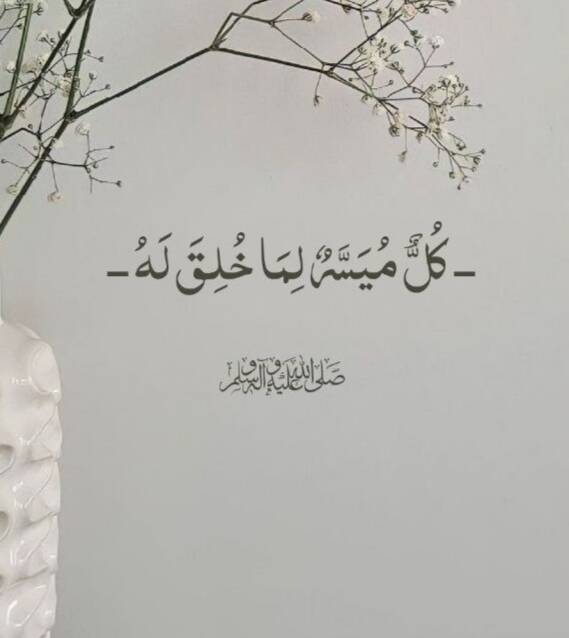 - كُلٌّ مُيَسَّرٌ لِمَا خُلِقَ لَهُ -
صَلَّى اللهُ عَلَيْهِ وَآلِهِ وَسَلَّمَ